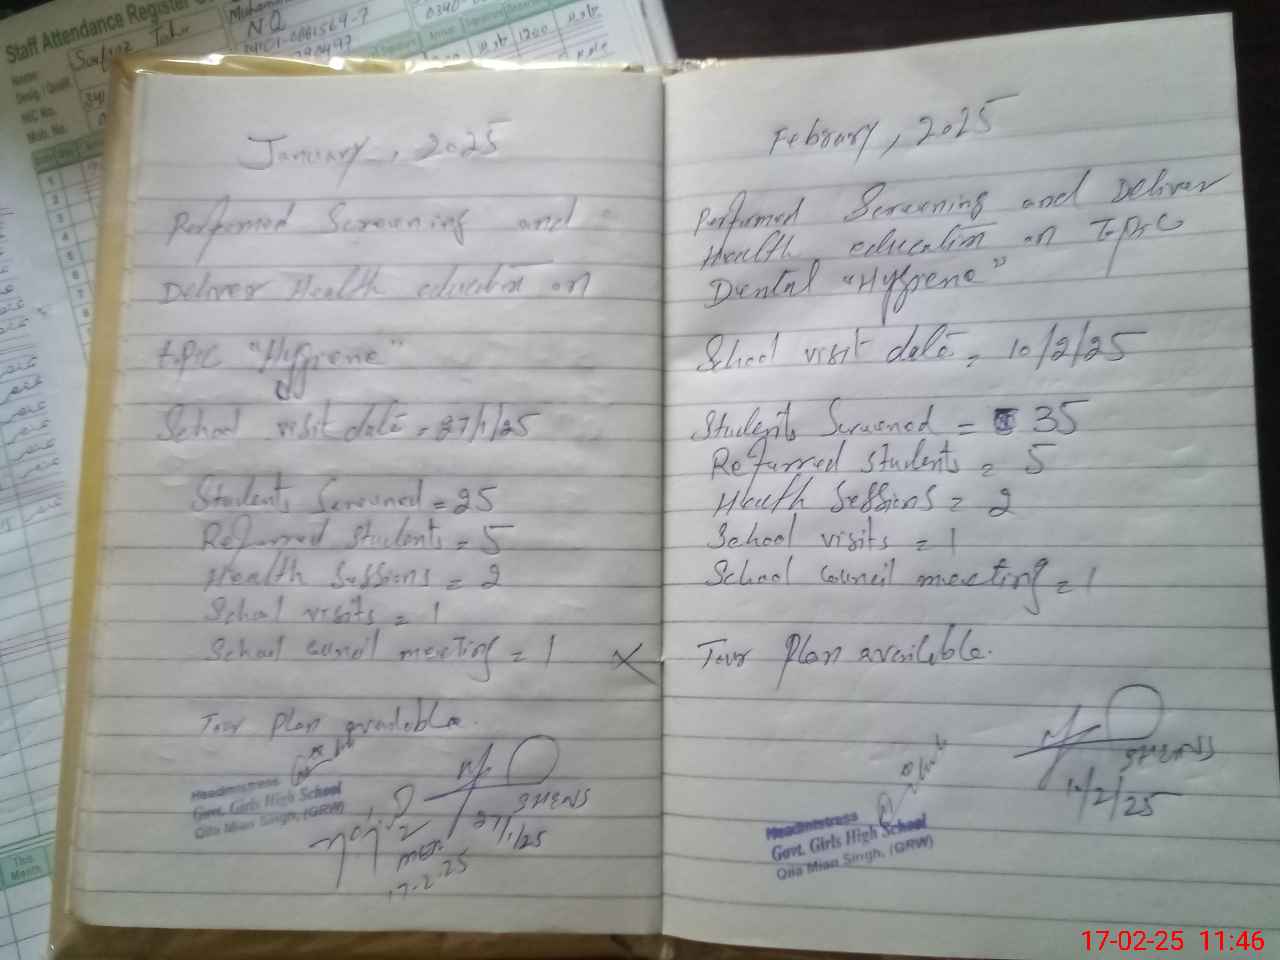 Staff Attendance Register
Name
Desig. / Qualif.
NIC No.
Mob. No.
NQ
January, 2025
Performed Screening and
Deliver Health education on
topic "Hygiene"
School visit date = 27/1/25
Students Screened = 25
Referred students = 5
Health Sessions = 2
School visits = 1
School council meeting = 1
Tour plan available.
Headmistress
Govt. Girls High School
Qila Mian Singh, (GRW)
27/1/25
17-2-25
February, 2025
Performed Screening and Deliver
Health education on Topic
Dental "Hygiene"
School visit date = 10/2/25
Students Screened = 35
Referred students = 5
Health Sessions = 2
School visits = 1
School council meeting = 1
Tour Plan available.
Headmistress
Govt. Girls High School
Qila Mian Singh, (GRW)
This
Month
17-02-25 11:46